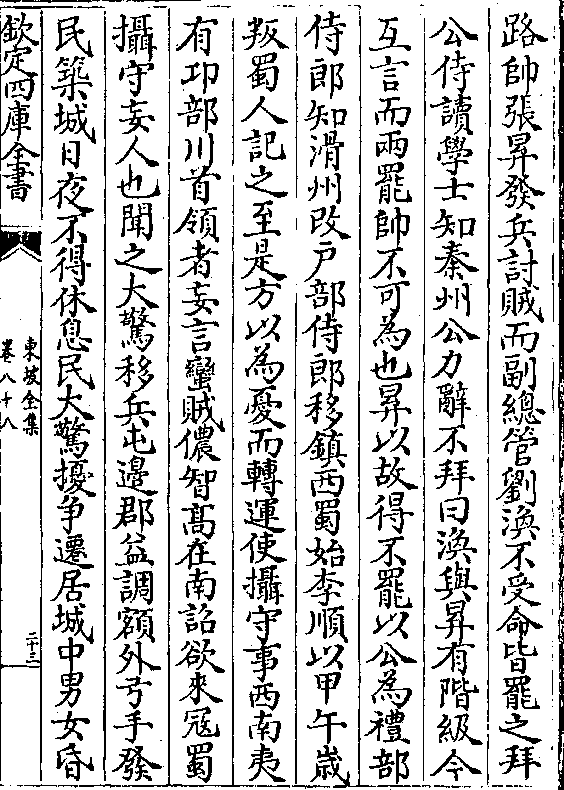 路帥張昇發兵討賊而副總管劉渙不受命皆罷之拜
公侍讀學士知秦州公力辭不拜曰渙與昇有階級今
互言而兩罷帥不可為也昇以故得不罷以公為禮部
侍郎知滑州改戶部侍郎移鎮西蜀始李順以甲午歲
叛蜀人記之至是方以為憂而轉運使攝守事西南夷
有卭部川首領者妄言蠻賊儂智髙在南詔欲來冦蜀
攝守妄人也聞之大驚移兵屯邉郡益調額外弓手發
民築城日夜不得休息民大驚擾争遷居城中男女昏
欽定四庫全書
東坡全集
卷八十八
二十三